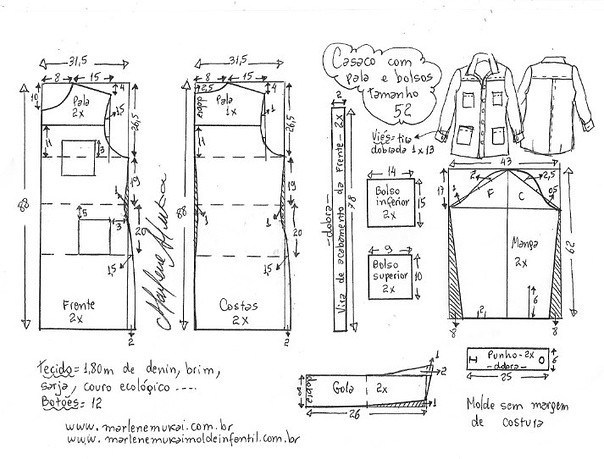 31,5
8
15
4
10
Pala
2x
15
26,5
11
3
1
19
5
3
20
88
15
Frente
2x
2
Marlene Mukai
31,5
8
15
4
2,5
dobra
Pala
1x
1
26,5
11
19
1
1
20
88
15
Costas
2x
2
Casaco com
pala e bolsos
tamanho
52
2
Vira de acabamento da Frente - 2x
-dobra-
78
Viés=tira
dobrada 1x13
14
Bolso
inferior
2x
15
9
Bolso
superior
2x
10
43
17
1
F
C
2,5
0,5
Manga
2x
62
6
2
8
8
Punho-2x
-dobra-
6
25
dobra
8
Gola
2x
1
2
1
26
Tecido= 1,80m de denin, brim,
sarja, couro ecológico ....
Botões= 12
www.marlenemukai.com.br
www.marlenemukaimoldeinfantil.com.br
Molde sem margem
de costura